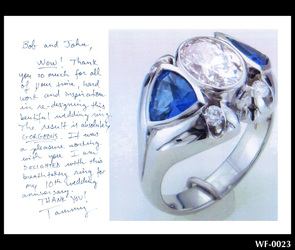 Bob and John,
Wow! Thank
you so much for all
of your time, hard
work and inspiration
in re-designing this
beautiful wedding ring.
The result is absolutely
GORGEOUS. It was
a pleasure working
with you. I am
DELIGHTED with this
breathtaking ring for
my 10th wedding
anniversary.
THANK YOU!
Tammy
WF-0023